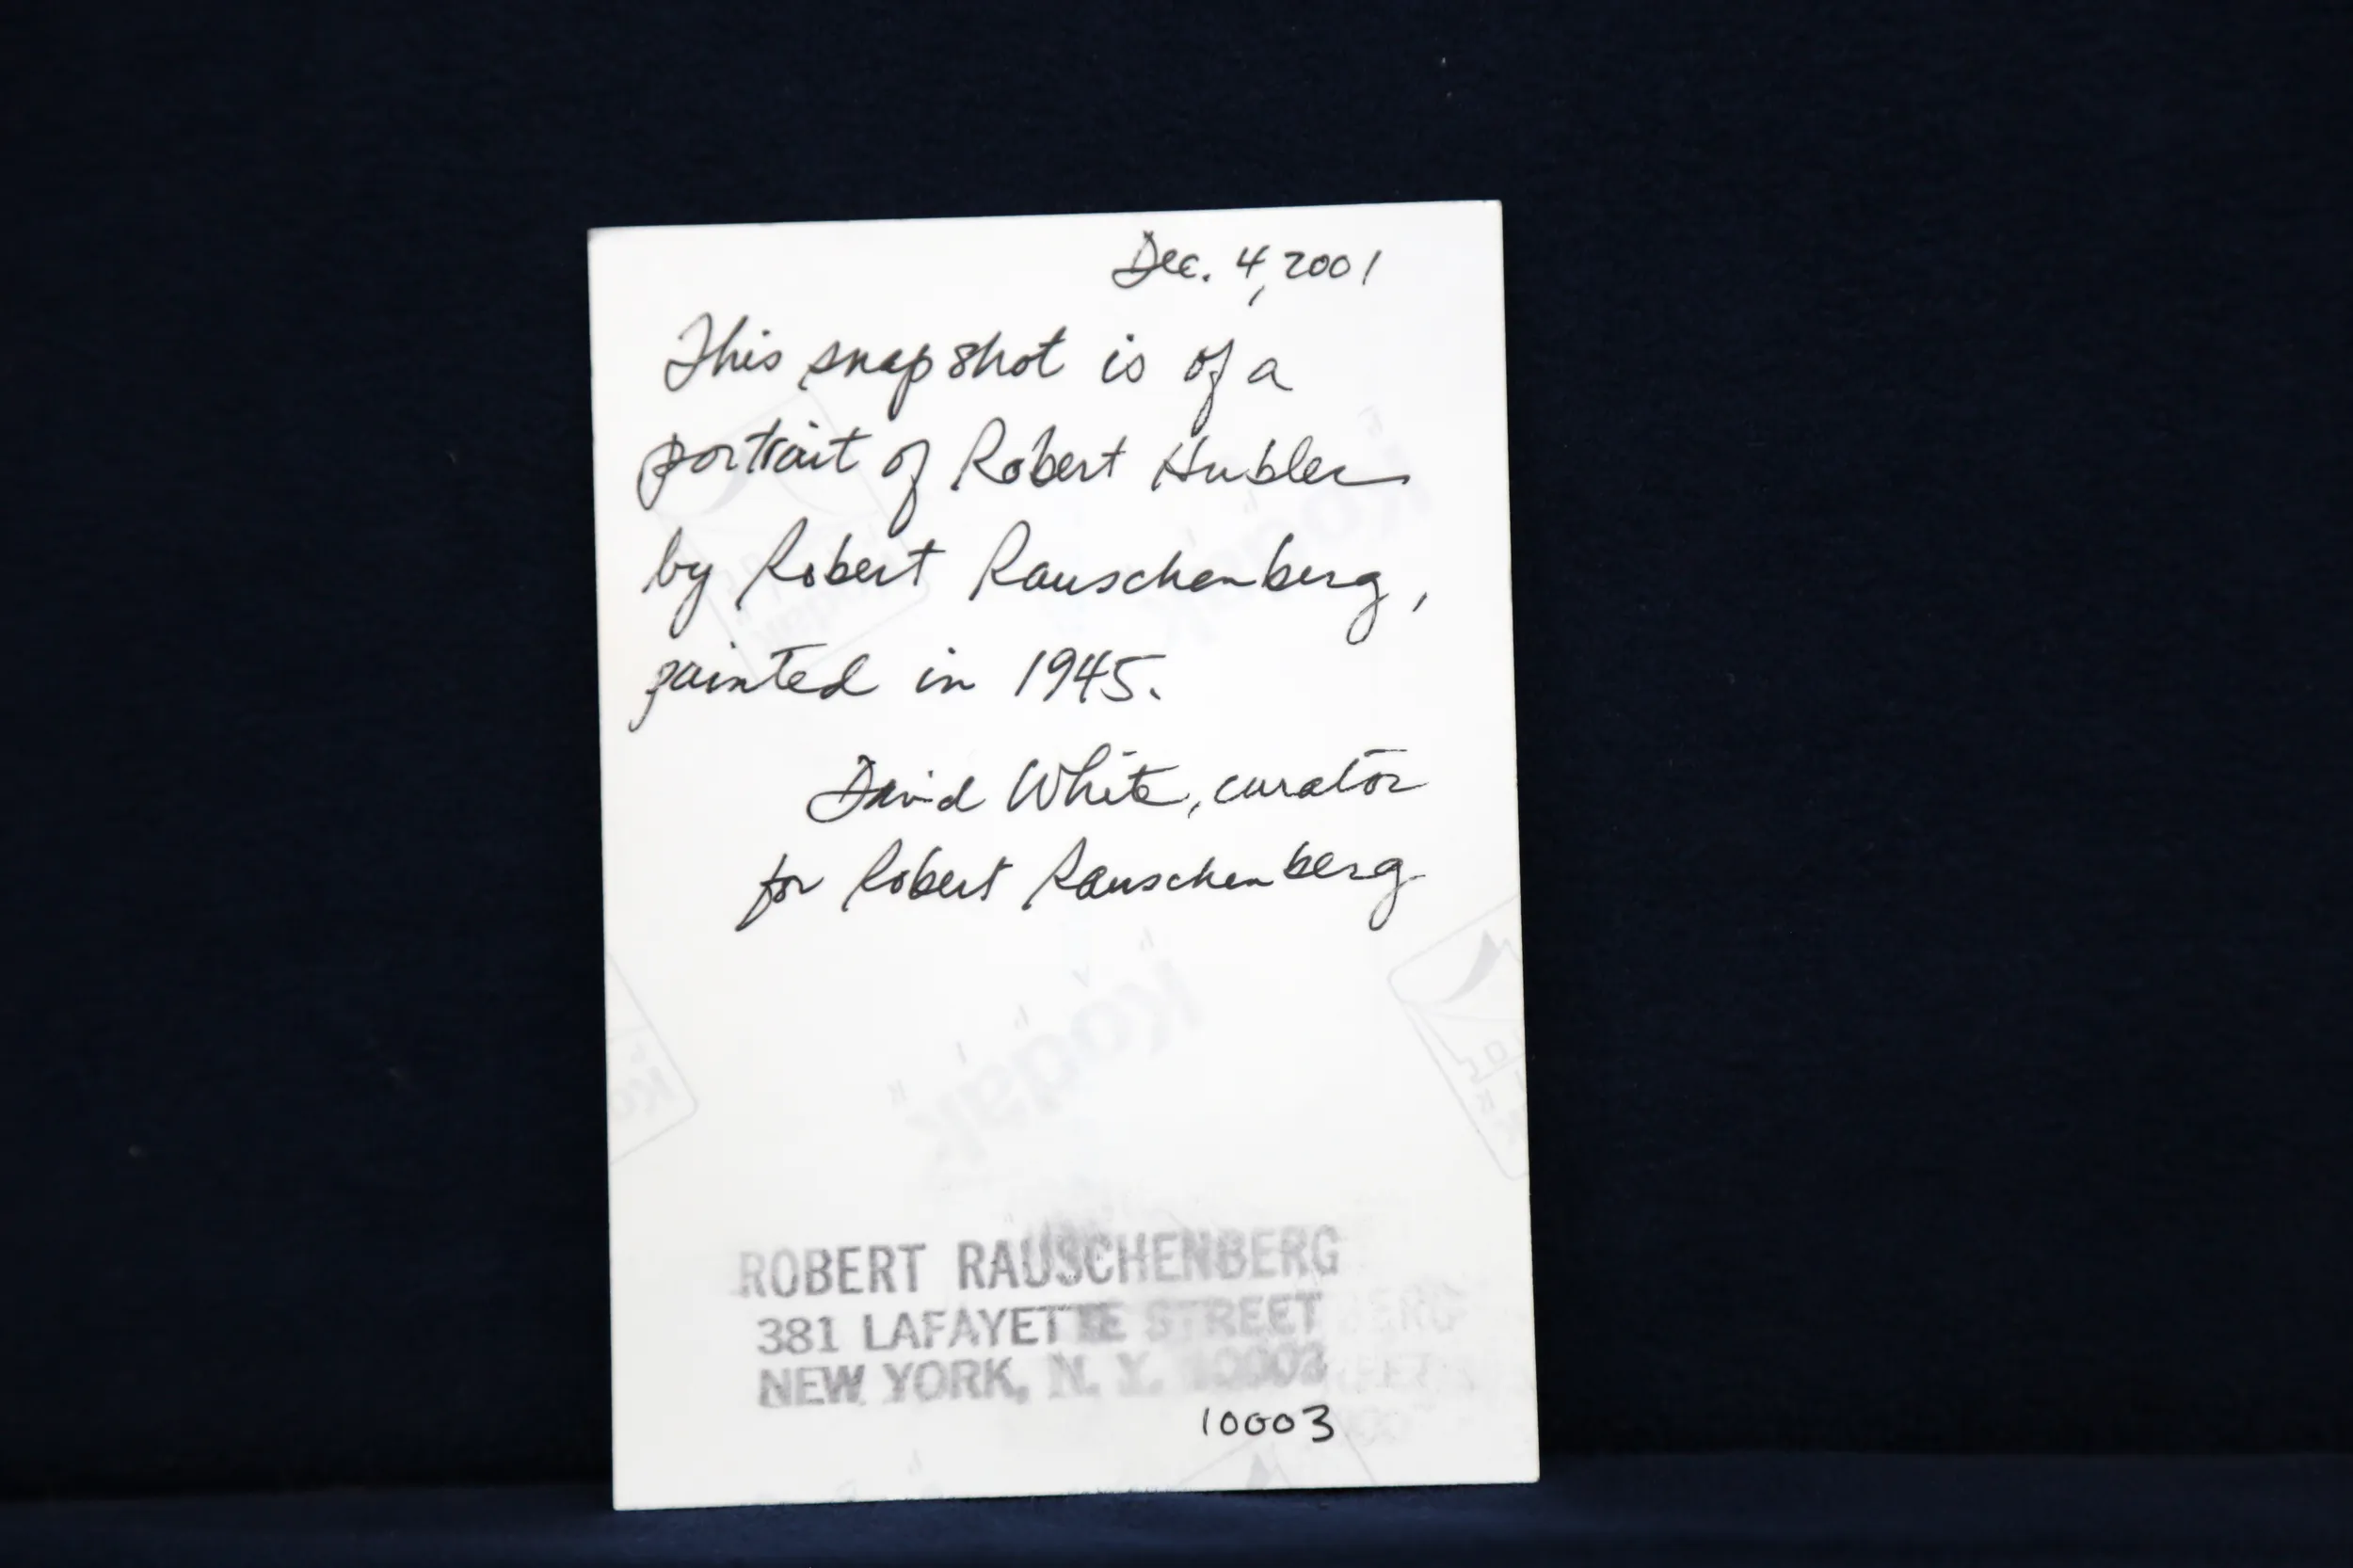 Dec. 4, 2001
This snapshot is of a
portrait of Robert Hubler
by Robert Rauschenberg,
painted in 1945.
David White, curator
for Robert Rauschenberg
Kodak
Kodak
ROBERT RAUSCHENBERG
381 LAFAYETTE STREET
NEW YORK, N. Y. 10003
10003